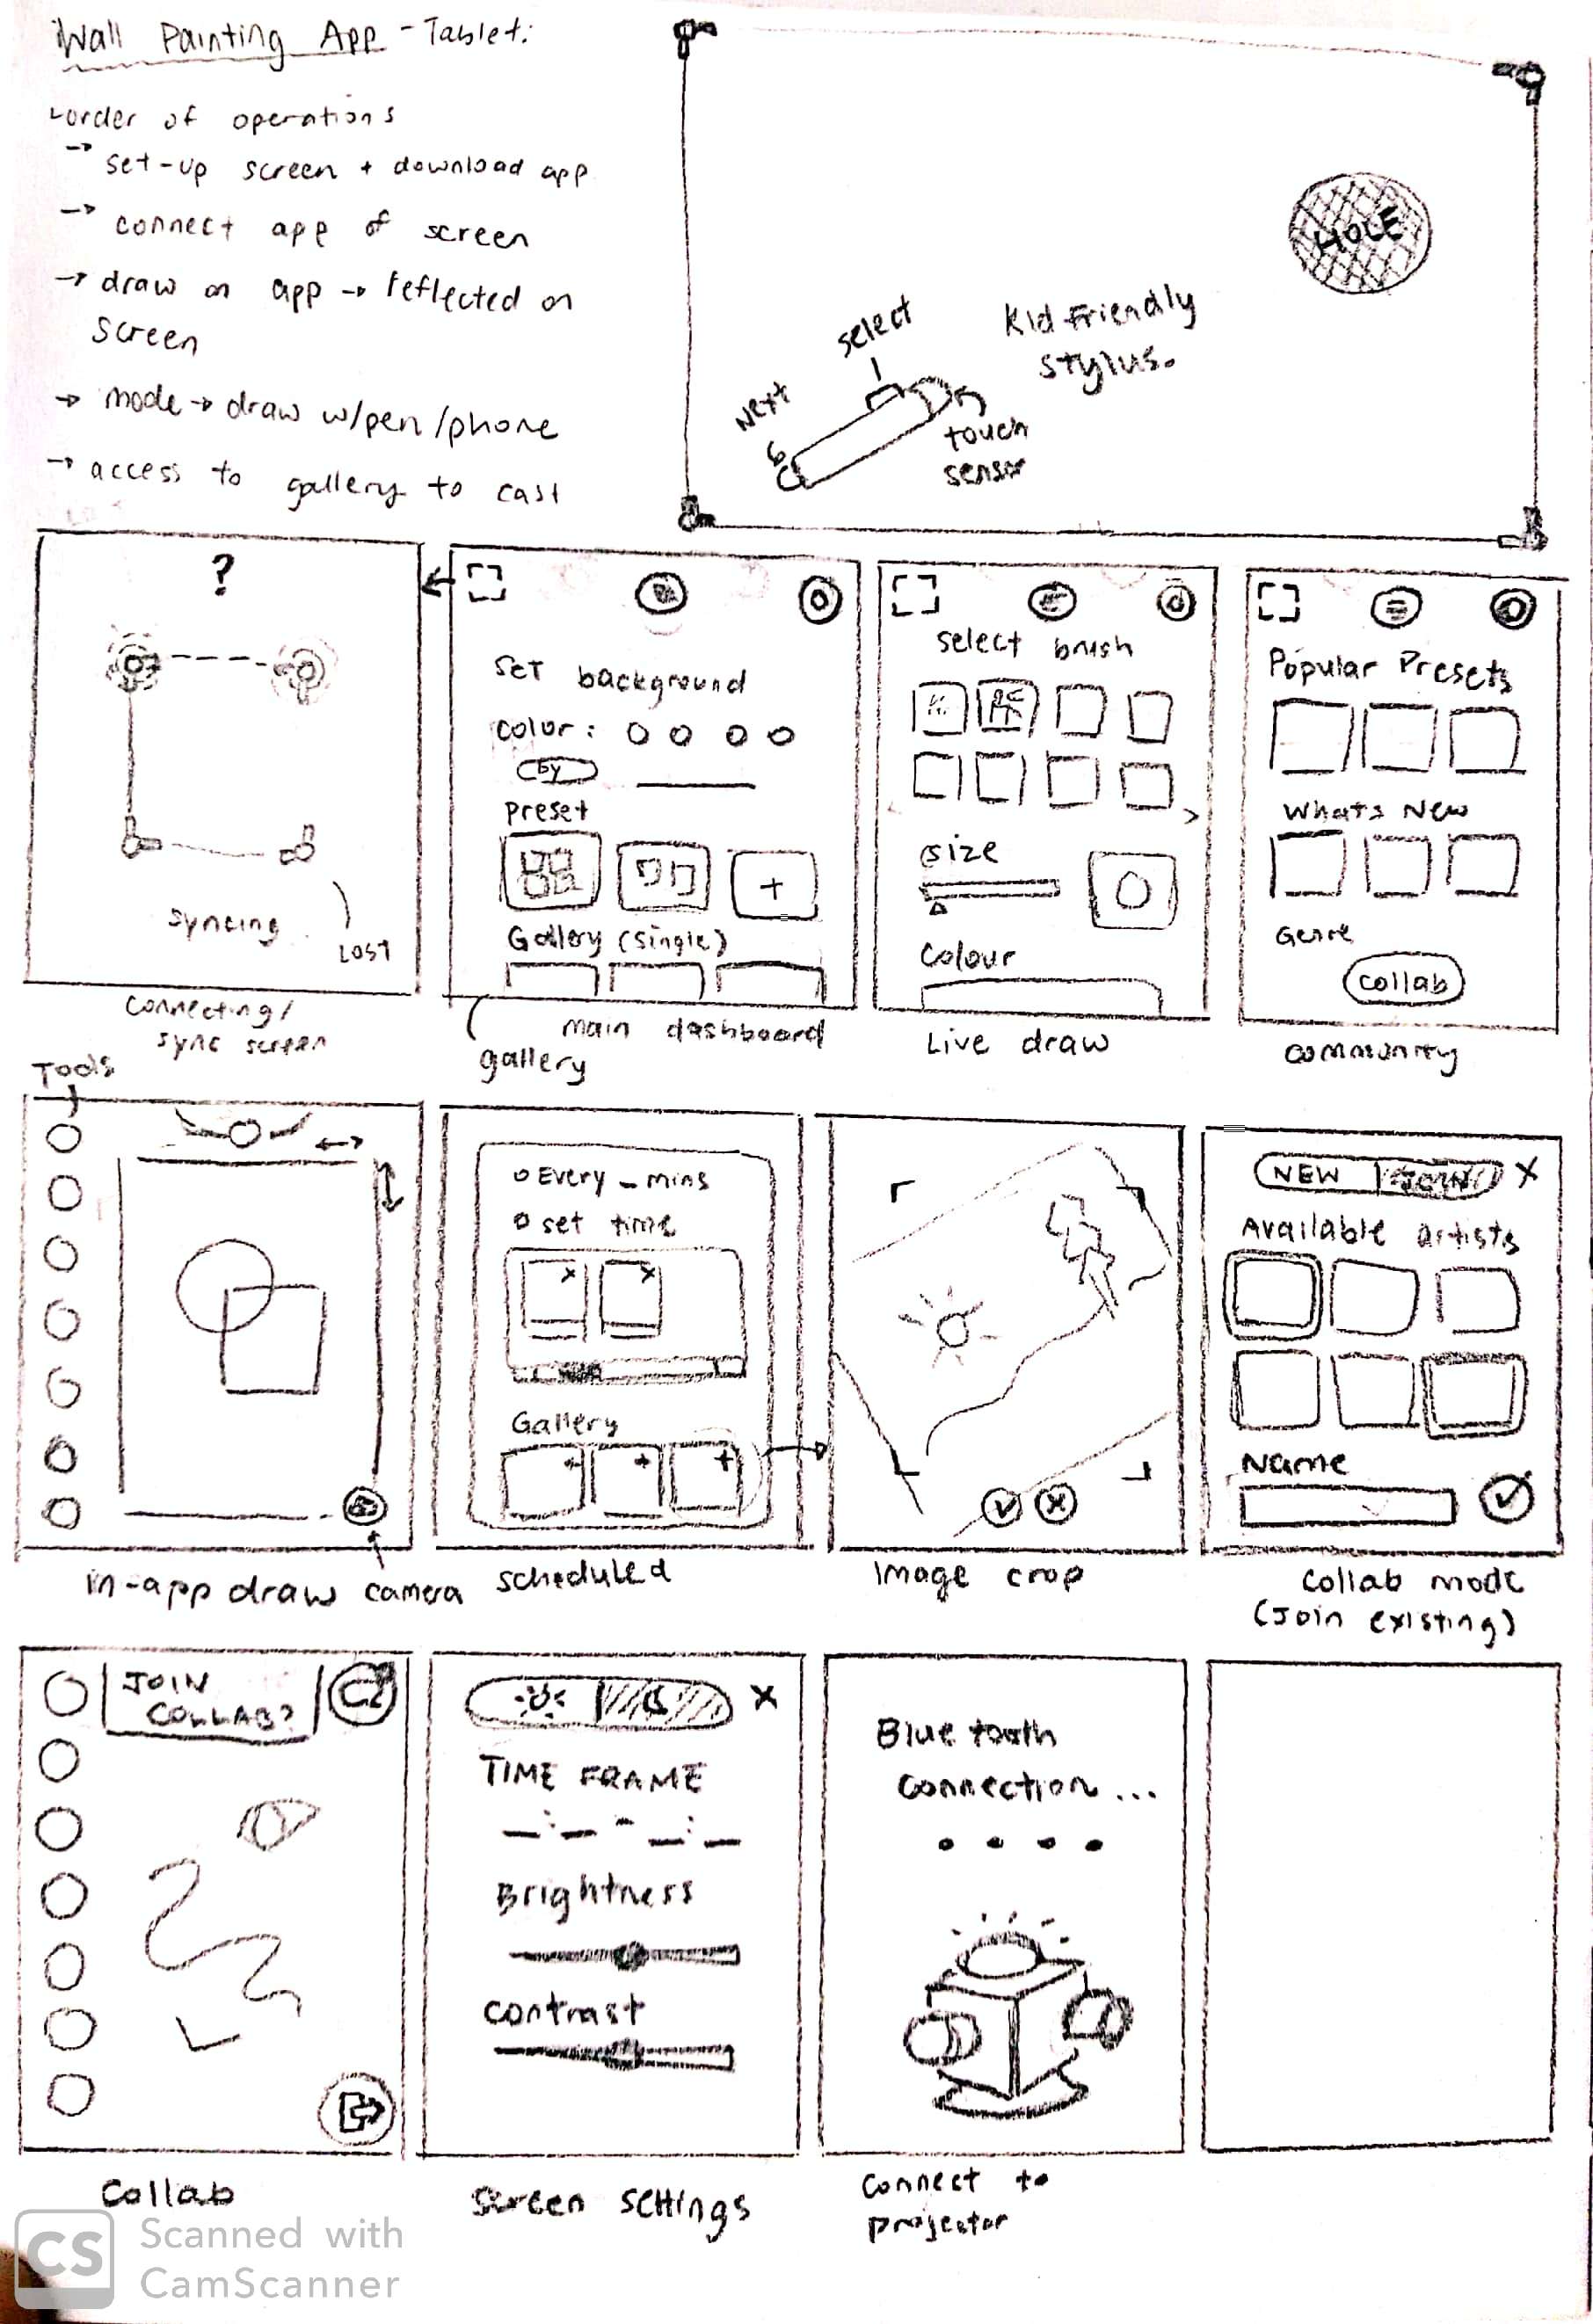 Wall Painting App - Tablet:
order of operations
→ set-up screen + download app
→ connect app of screen
→ draw on app → reflected on
screen
→ mode → draw w/pen/phone
→ access to gallery to cast
HOLE
select
Kid Friendly
stylus.
Next
touch
sensor
?
syncing
LOST
connecting/
sync screen
Set background
color:
preset
+
Gallery (single)
main dashboard
gallery
select brush
>
size
colour
Live draw
Popular Presets
Whats New
Genre
collab
community
Tools
in-app draw
camera
Every _ mins
set time
x x
Gallery
+ + +
scheduled
Image crop
NEW JOIN X
Available artists
Name
collab mode
(Join existing)
JOIN
COLLAB?
Collab
X
TIME FRAME
Brightness
contrast
Screen settings
Blue tooth
connection ...
connect to
projector
CS
Scanned with
CamScanner